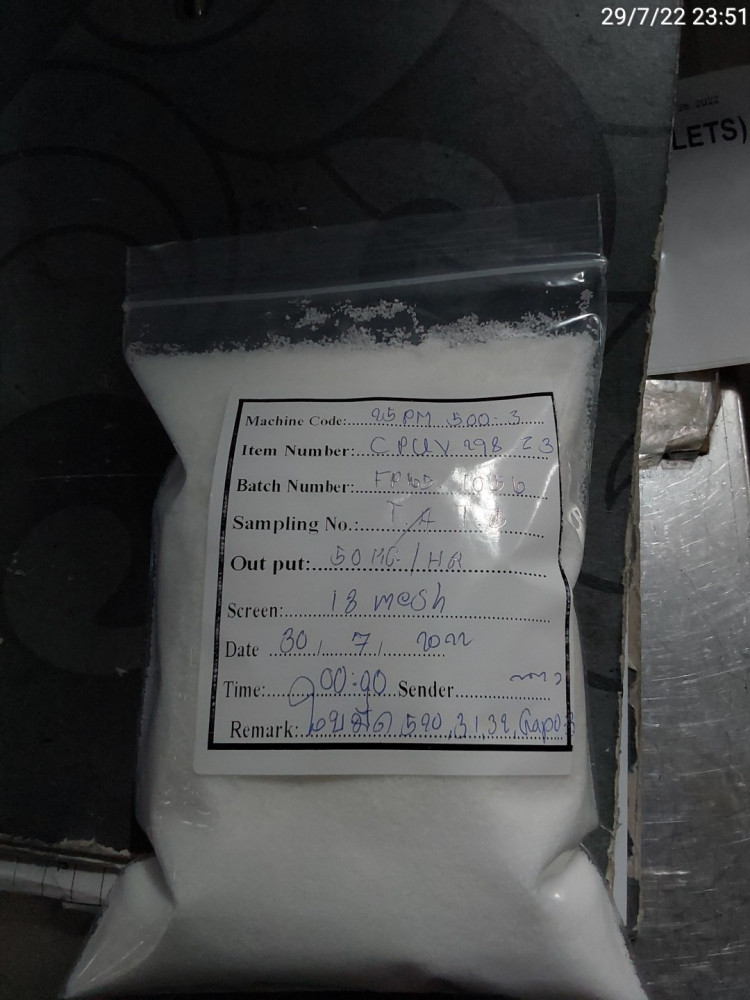 29/7/22 23:51
2022
LETS)
Machine Code: 25PM 500-3
Item Number: CPUV 298 Z3
Batch Number:
Sampling No.: T A
Out put: 50 KG/HR
Screen: 18 mesh
Date 30/7/2022
Time: 00:90 Sender
Remark: ใบมีด 590,31,32,